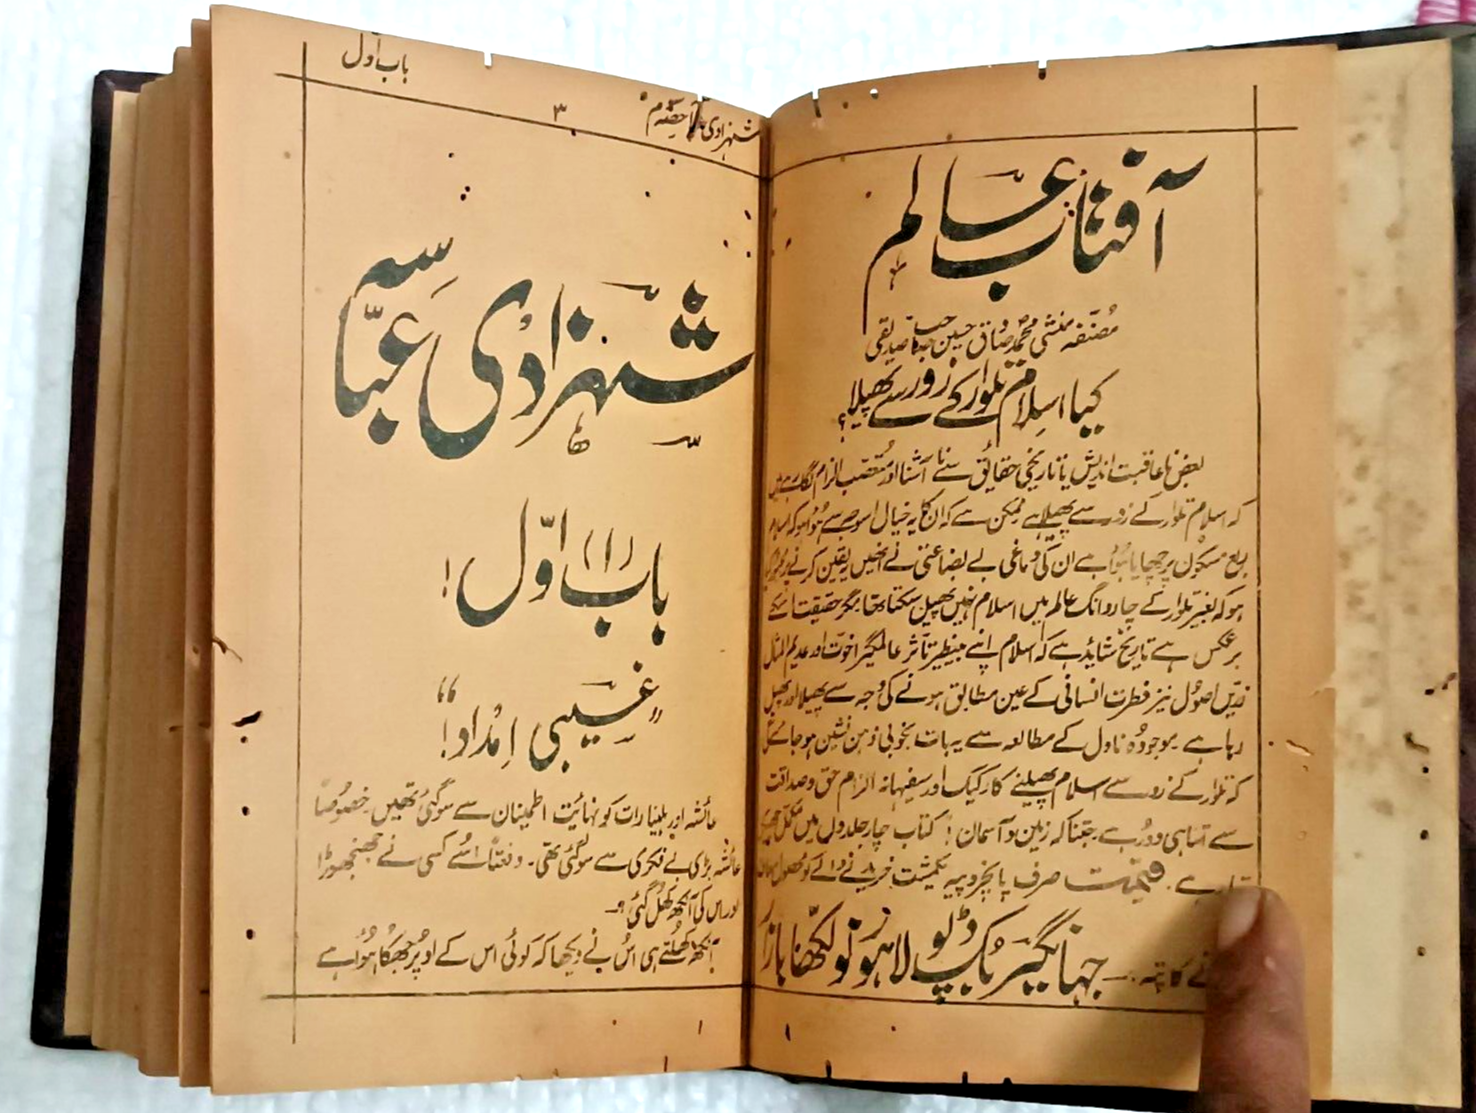 آفتاب عالم
مصنفہ منشی محمد صادق حسین صاحب صدیقی
کیا اسلام تلوار کے زور سے پھیلا؟
بعض ناعاقبت اندیش یا تاریخی حقائق سے نا آشنا اور متعصب الزام لگا رہے ہیں
کہ اسلام تلوار کے زور سے پھیلا ہے ممکن ہے کہ ان کا یہ خیال اسوجہ سے ہوا ہو کہ اسلام
ربع مسکون پر چھایا ہوا ہے ان کی دماغی بے بضاعتی نے انہیں یقین کرنے پر
ہو کہ بغیر تلوار کے چار دانگ عالم میں اسلام نہیں پھیل سکتا تھا مگر حقیقت اسکے
برعکس ہے تاریخ شاہد ہے کہ اسلام اپنے بینظیر تاثر عالمگیر اخوت اور عدیم المثال
زریں اصول نیز فطرت انسانی کے عین مطابق ہونے کی وجہ سے پھیلا اور پھیل
رہا ہے۔ موجودہ ناول کے مطالعہ سے یہ بات بخوبی ذہن نشین ہو جائے گی
کہ تلوار کے زور سے اسلام پھیلنے کا رکیک اور سفیہانہ الزام حق و صداقت
سے اتنا ہی دور ہے جتنا کہ زمین و آسمان! کتاب چار جلدوں میں مکمل
ہے۔ قیمت صرف پانچروپیہ یکمشت خریدنے والے کو محصول معاف
کا پتہ:۔ جہانگیر بک ڈپو لاہور نولکھا بازار
باب اول
۳
شہزادی حصہ م
شہزادی عباسہ
باب (۱) اوّل!
"غیبی امداد!"
عائشہ اور بلینا رات کو نہائت اطمینان سے سوگئی تھیں۔ خصوصاً
عائشہ بڑی بے فکری سے سوگئی تھی۔ دفعتاً اسے کسی نے جھنجھوڑا
اور اس کی آنکھ کھل گئی۔
آنکھ کھلتے ہی اس نے دیکھا کہ کوئی اس کے اوپر جھکا ہوا ہے